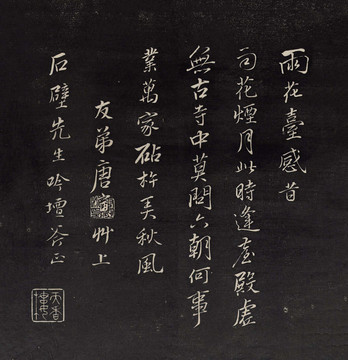 雨花臺感昔
司花煙月此時逢臺殿虛
無古寺中莫問六朝何事
業萬家砧杵美秋風
友弟唐寅艸上
石壁先生吟壇